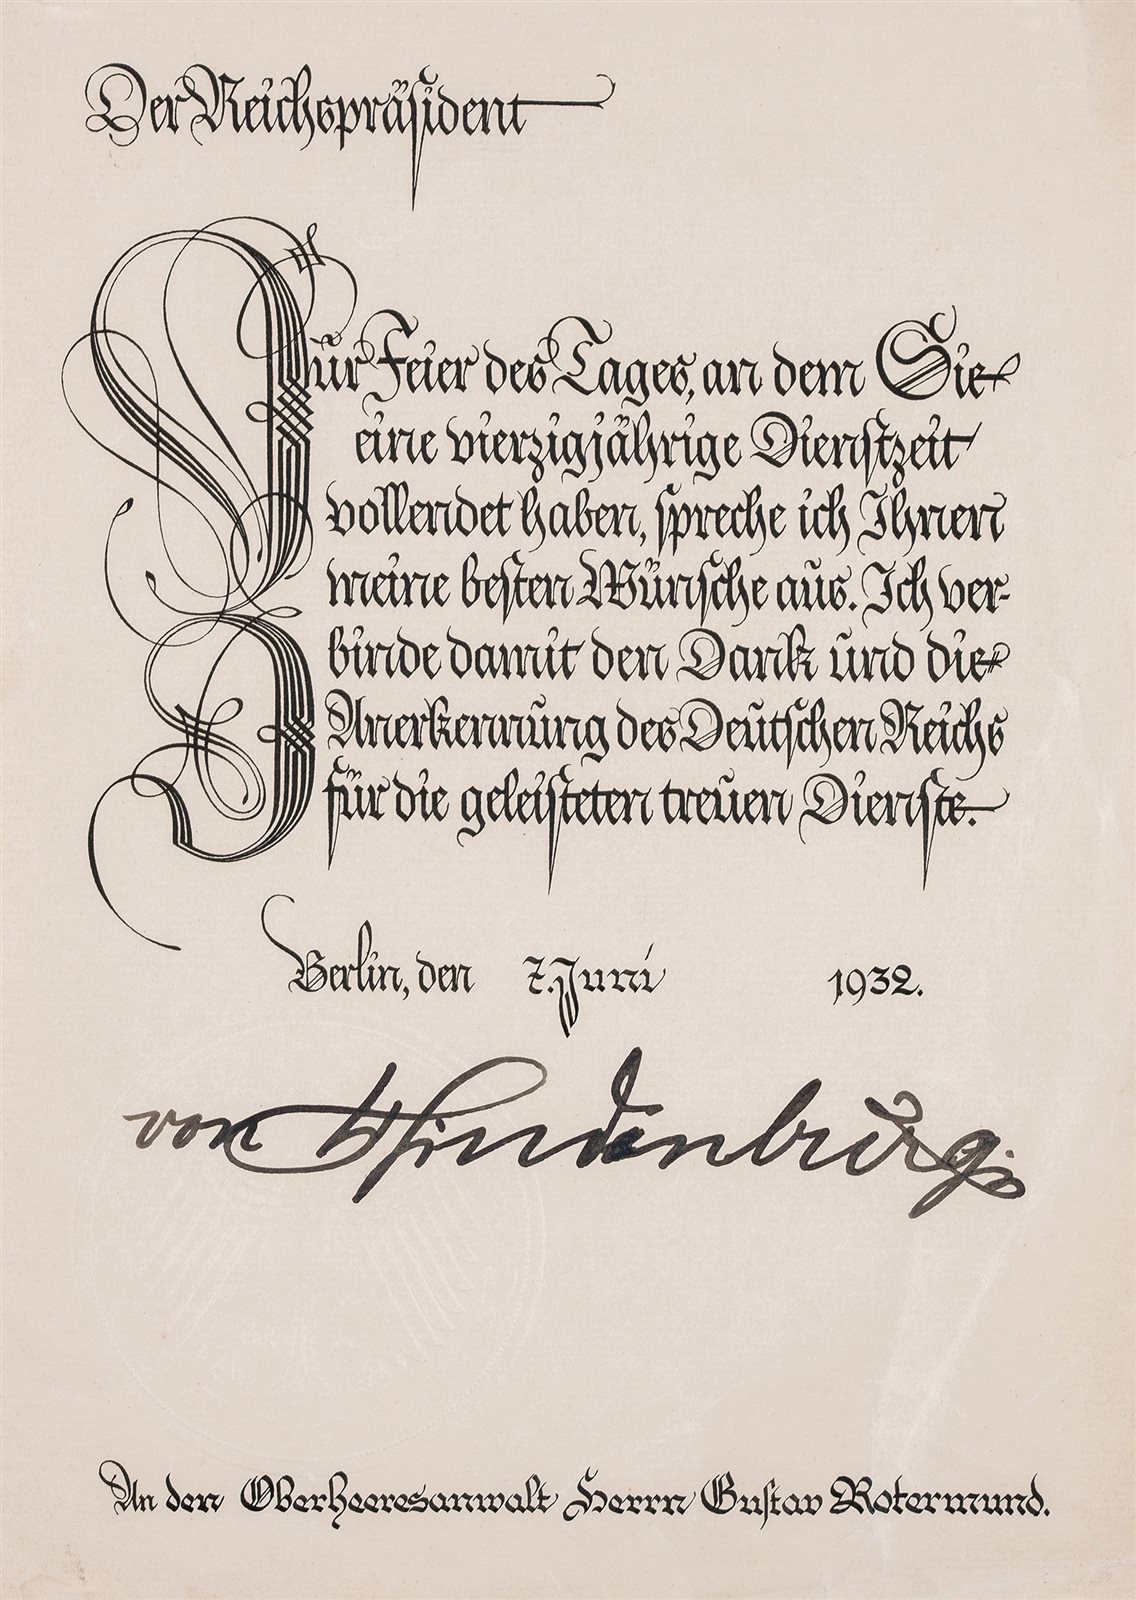 Der Reichspräsident
Zur Feier des Tages, an dem Sie
eine vierzigjährige Dienstzeit
vollendet haben, spreche ich Ihnen
meine besten Wünsche aus. Ich ver-
binde damit den Dank und die
Anerkennung des Deutschen Reichs
für die geleisteten treuen Dienste.
Berlin, den 7. Juni 1932.
von Hindenburg.
An den Oberheeresanwalt Herrn Gustav Rotermund.